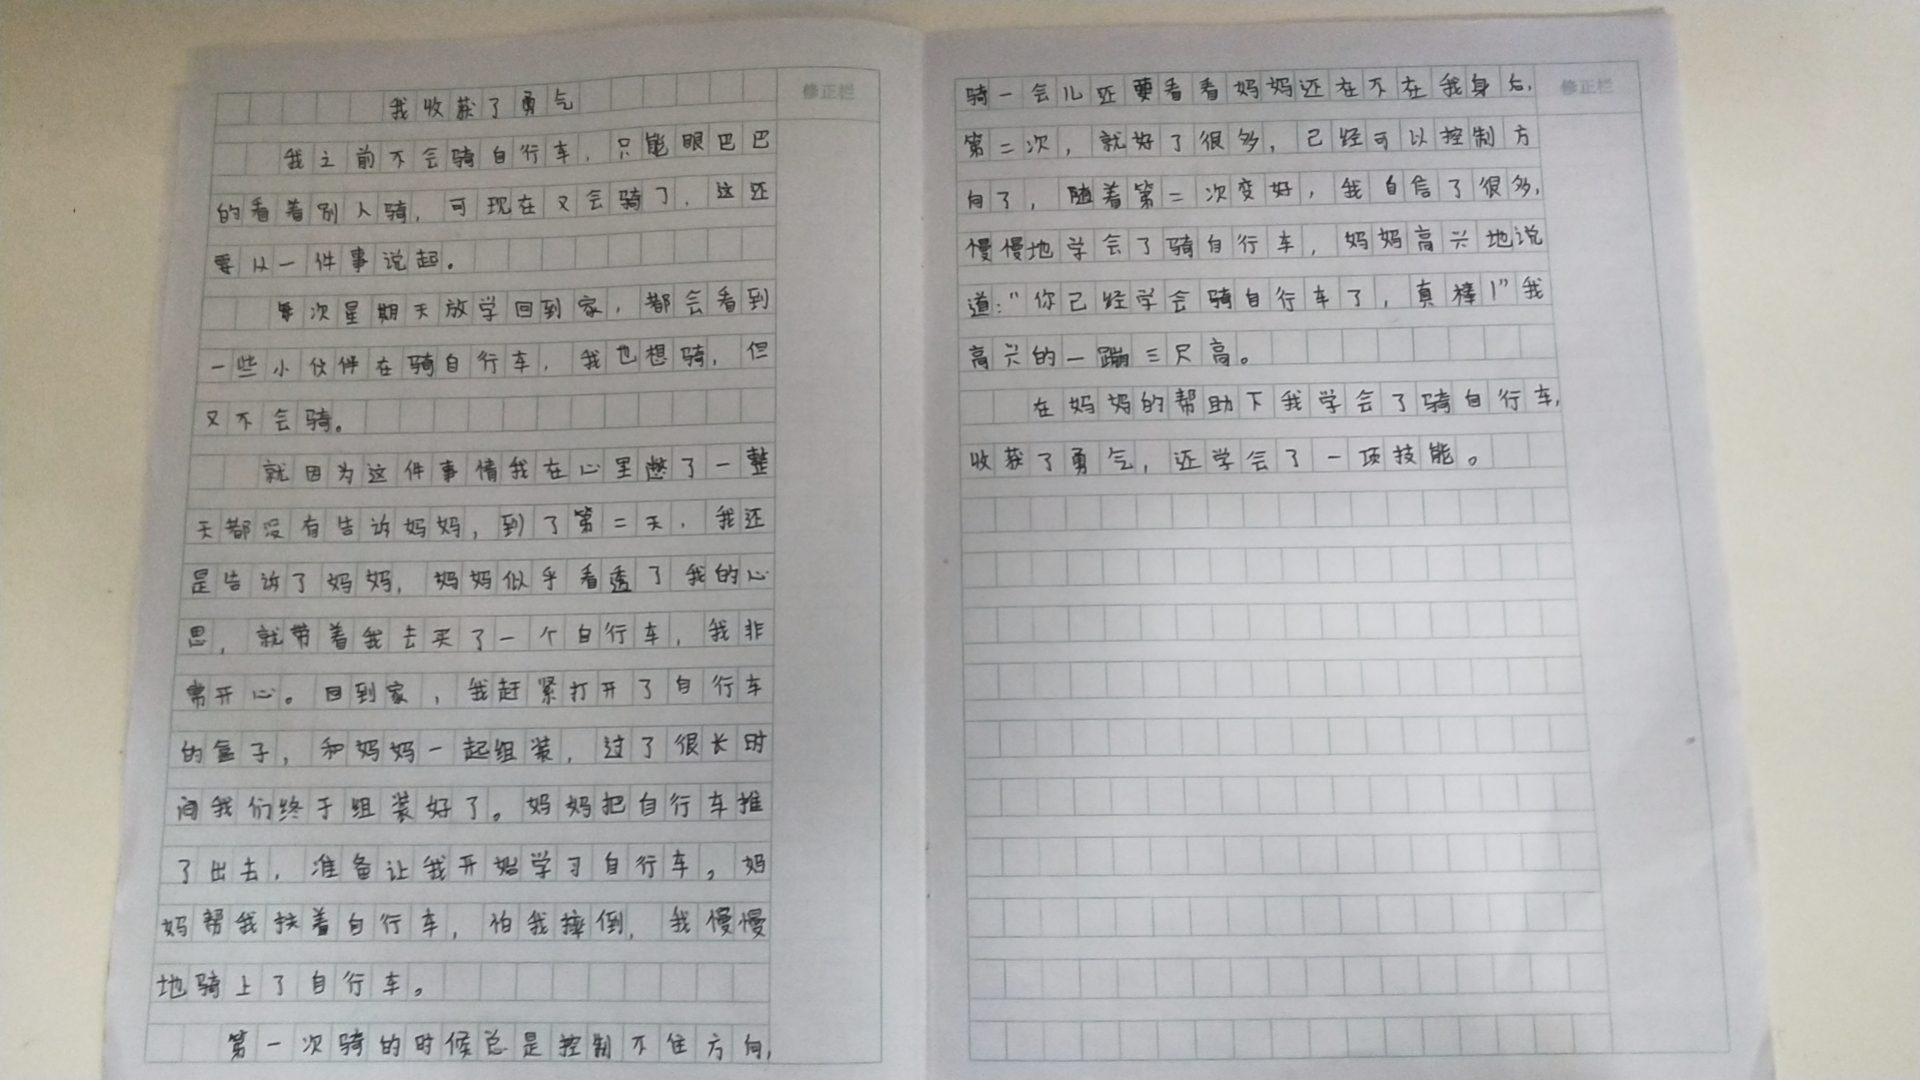 我收获了勇气
修正栏
我之前不会骑自行车，只能眼巴巴
的看着别人骑，可现在又会骑了，这还
要从一件事说起。
每次星期天放学回到家，都会看到
一些小伙伴在骑自行车，我也想骑，但
又不会骑。
就因为这件事情我在心里憋了一整
天都没有告诉妈妈，到了第二天，我还
是告诉了妈妈，妈妈似乎看透了我的心
思，就带着我去买了一个自行车，我非
常开心。回到家，我赶紧打开了自行车
的盒子，和妈妈一起组装，过了很长时
间我们终于组装好了。妈妈把自行车推
了出去，准备让我开始学习自行车。妈
妈帮我扶着自行车，怕我摔倒，我慢慢
地骑上了自行车。
第一次骑的时候总是控制不住方向，
骑一会儿还要看看妈妈还在不在我身后，
修正栏
第二次，就好了很多，已经可以控制方
向了，随着第二次变好，我自信了很多，
慢慢地学会了骑自行车，妈妈高兴地说
道：“你已经学会骑自行车了，真棒！”我
高兴的一蹦三尺高。
在妈妈的帮助下我学会了骑自行车，
收获了勇气，还学会了一项技能。